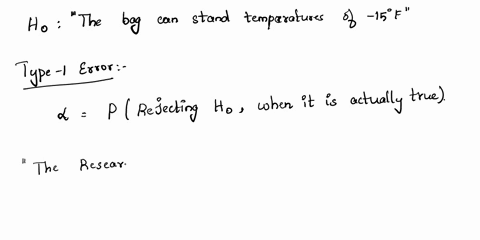 H₀ : "The bag can stand temparatures of -15°F"
Type-1 Error:-
α = P ( Rejecting H₀, when it is actually true).
"The Resear.